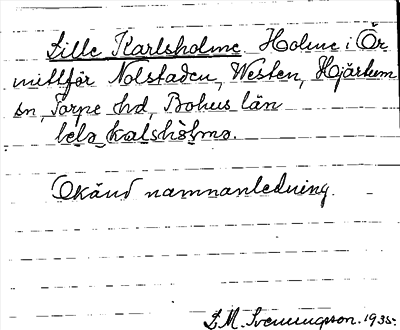 Lille Karlsholme Holme i Ör
mittför Nolstaden, Westen, Hjärtum
sn, Torpe hd, Bohus län
lelə kalshòlmə.
Okänd namnanledning.
S. M. Svenungsson. 1935.